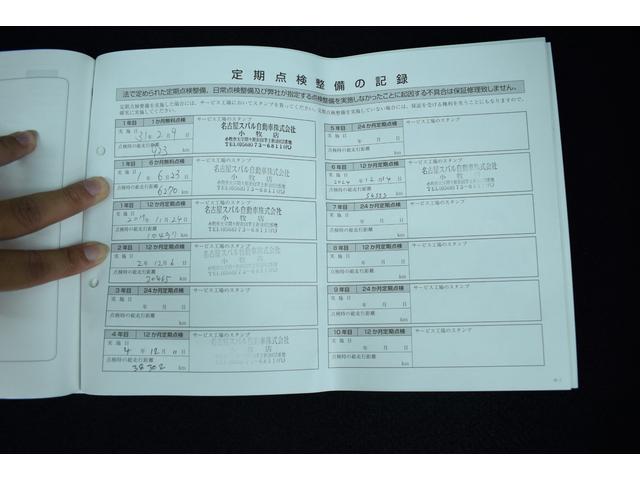 定期点検整備の記録
法で定められた定期点検整備、日常点検整備及び弊社が指定する点検整備を実施しなかったことに起因する不具合は保証修理致しません。
定期点検整備を実施した場合には、サービス工場においてスタンプを貰ってください。定期点検整備を実施していない場合には、保証を受ける権利を失うことにもなりますので、
確実に実施してください。
1年目 1か月無料点検
サービス工場のスタンプ
実施日
31年2月9日
点検時の総走行距離
423 km
名古屋スバル自動車株式会社
小牧店
1年目 6か月無料点検
サービス工場のスタンプ
実施日
1年6月23日
点検時の総走行距離
6270 km
名古屋スバル自動車株式会社
小牧店
1年目 12か月定期点検
サービス工場のスタンプ
実施日
2019年11月24日
点検時の総走行距離
10497 km
名古屋スバル自動車株式会社
小牧店
2年目 12か月定期点検
サービス工場のスタンプ
実施日
2年12月6日
点検時の総走行距離
20465 km
名古屋スバル自動車株式会社
小牧店
3年目 24か月定期点検
サービス工場のスタンプ
実施日
年 月 日
点検時の総走行距離
km
4年目 12か月定期点検
サービス工場のスタンプ
実施日
4年12月11日
点検時の総走行距離
38302 km
5年目 24か月定期点検
サービス工場のスタンプ
実施日
年 月 日
点検時の総走行距離
km
6年目 12か月定期点検
サービス工場のスタンプ
実施日
2024年12月14日
点検時の総走行距離
km
7年目 24か月定期点検
サービス工場のスタンプ
実施日
年 月 日
点検時の総走行距離
km
8年目 12か月定期点検
サービス工場のスタンプ
実施日
年 月 日
点検時の総走行距離
km
9年目 24か月定期点検
サービス工場のスタンプ
実施日
年 月 日
点検時の総走行距離
km
10年目 12か月定期点検
サービス工場のスタンプ
実施日
年 月 日
点検時の総走行距離
km